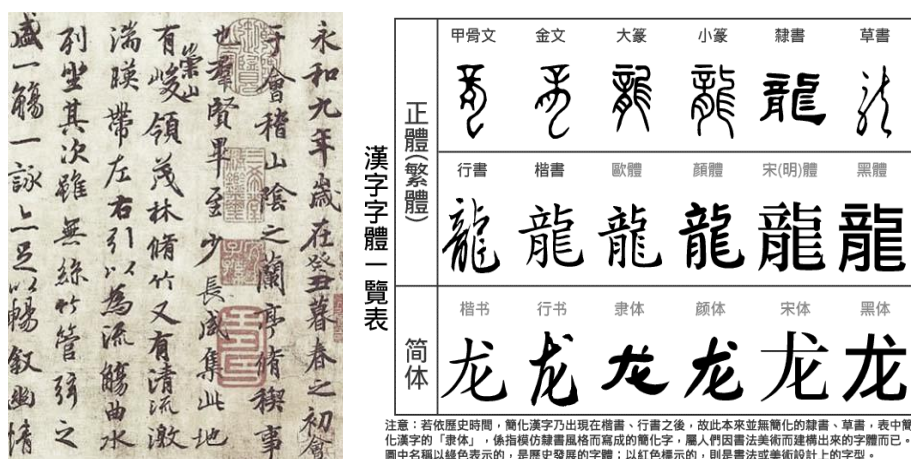 永和九年歲在癸丑暮春之初會
于會稽山陰之蘭亭脩稧事
也羣賢畢至少長咸集此地
有崇山峻領茂林脩竹又有清流激
湍暎帶左右引以為流觴曲水
列坐其次雖無絲竹管弦之
盛一觴一詠亦足以暢敘幽情
漢字字體一覽表
正體(繁體)
甲骨文 金文 大篆 小篆 隸書 草書
龍 龍 龍 龍 龍 龍
行書 楷書 歐體 顏體 宋(明)體 黑體
龍 龍 龍 龍 龍 龍
简体
楷书 行书 隶体 颜体 宋体 黑体
龙 龙 龙 龙 龙 龙
注意：若依歷史時間，簡化漢字乃出現在楷書、行書之後，故此本來並無簡化的隸書、草書，表中簡
化漢字的「隶体」，係指模仿隸書風格而寫成的簡化字，屬人們因書法美術而建構出來的字體而已。
圖中名稱以綠色表示的，是歷史發展的字體；以紅色標示的，則是書法或美術設計上的字型。